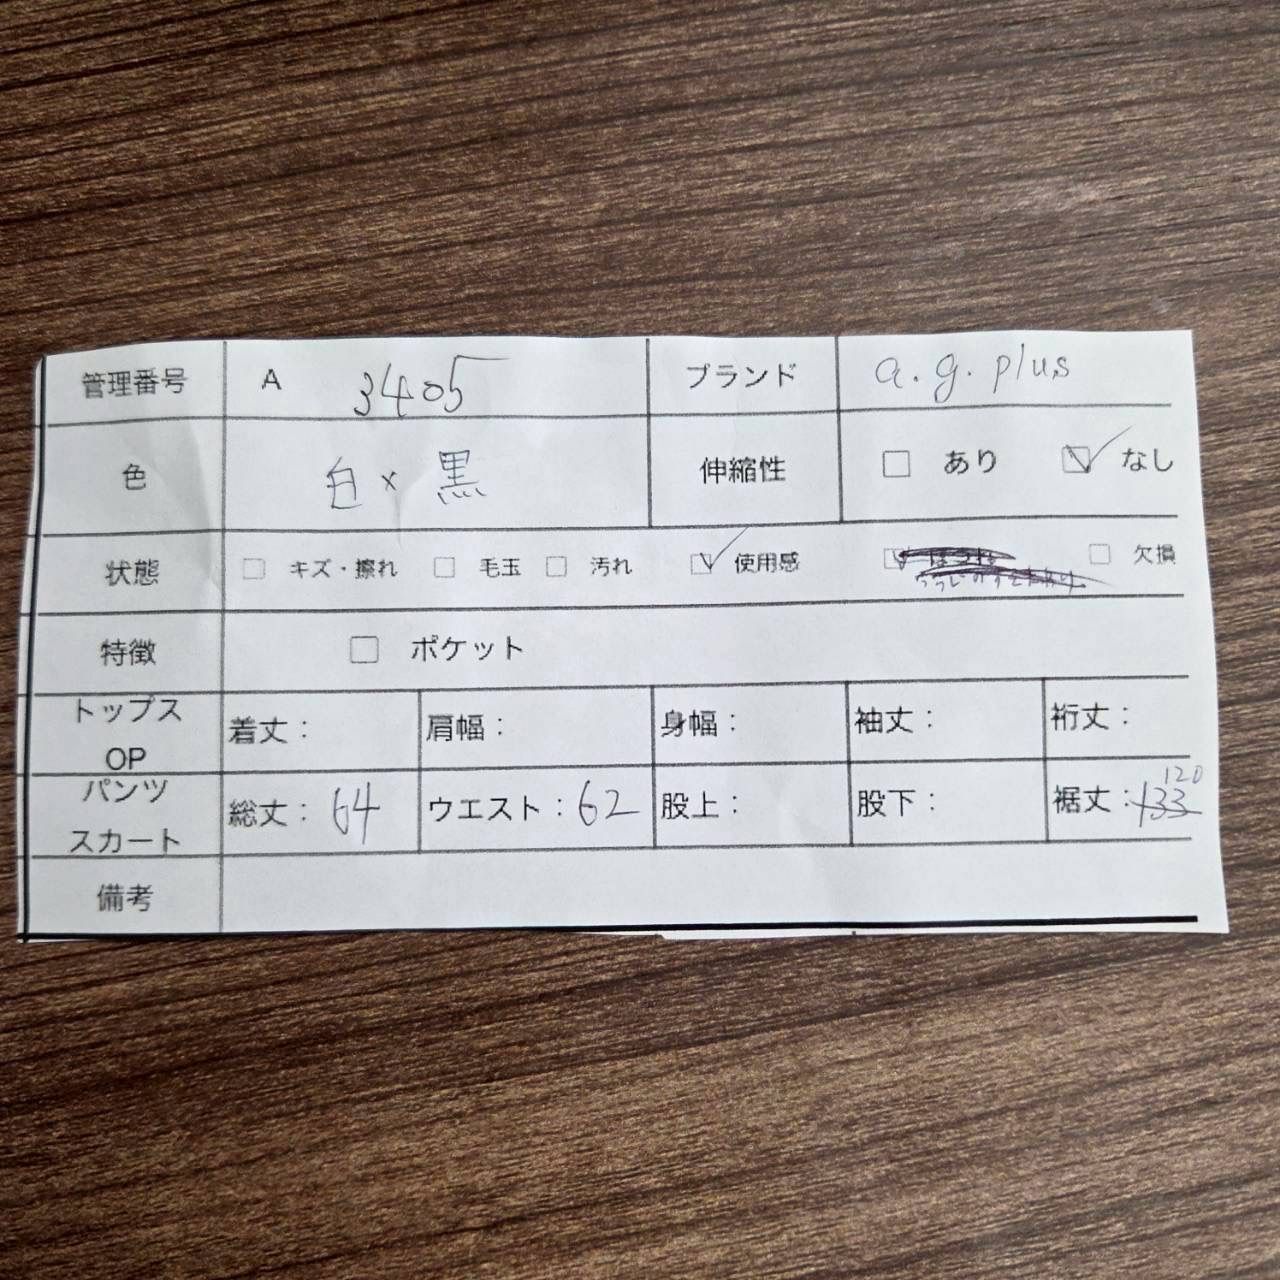 管理番号 A 3405 ブランド a.g.plus
色 白×黒 伸縮性 □ あり ☑ なし
状態 □ キズ・擦れ □ 毛玉 □ 汚れ ☑ 使用感 ☑ ほつれ □ 欠損
特徴 □ ポケット
トップス OP 着丈： 肩幅： 身幅： 袖丈： 裄丈：
パンツ スカート 総丈：64 ウエスト：62 股上： 股下： 裾丈：133 120
備考